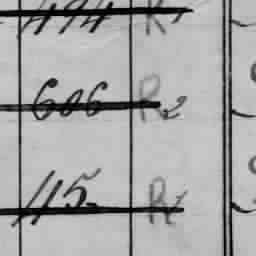 494 R1
606 R2
115 R1